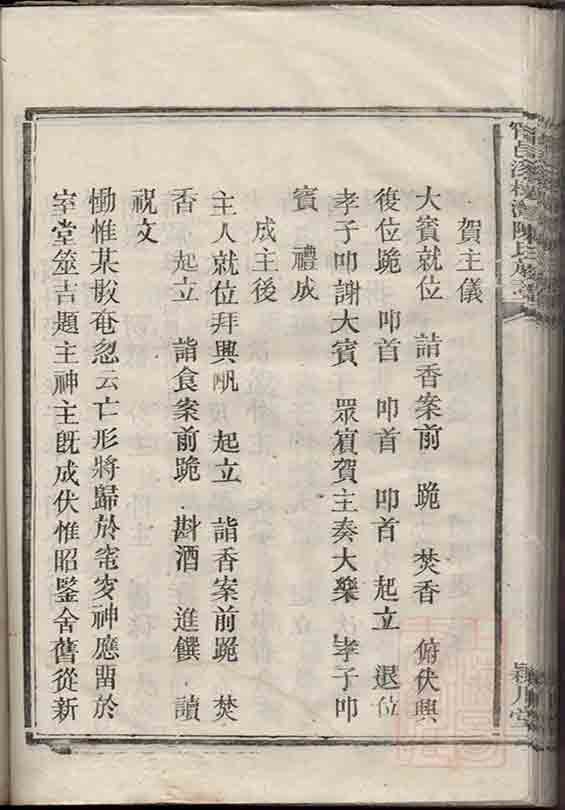 賀主儀
大賓就位　詣香案前　跪　焚香　俯伏興
復位跪　叩首　叩首　叩首　起立　退位
孝子叩謝大賓　眾賓賀主奏大樂　孝子叩
賓　禮成
成主後
主人就位拜興　起立　詣香案前跪　焚
香　起立　詣食案前跪　斟酒　進饌　讀
祝文
慟惟某殁奄忽云亡形將歸於窀穸神應畱於
室堂筮吉題主神主旣成伏惟昭鑒舍舊從新
陳氏族譜
潁川堂